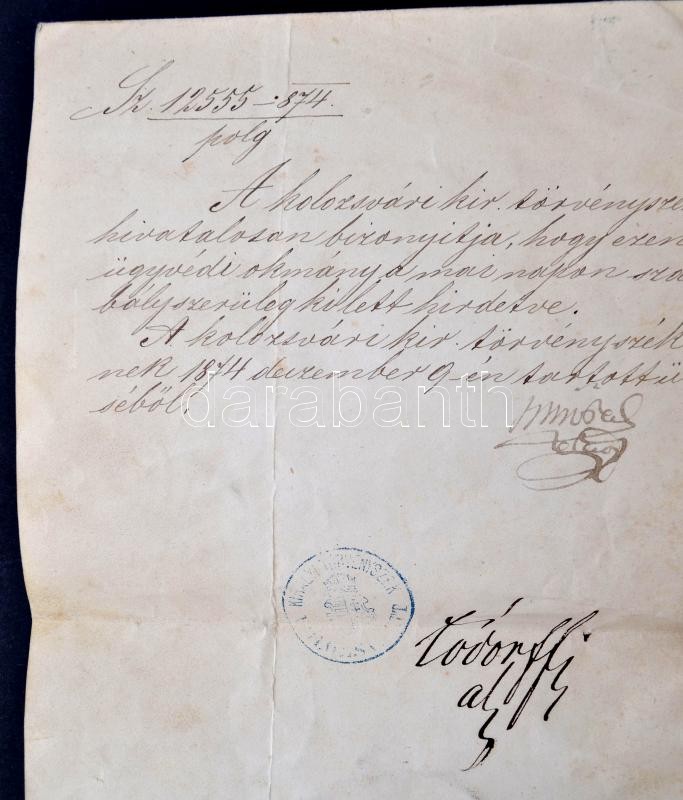 Sz. 12555 – 874.
polg
A kolozsvári kir. törvénysz
hivatalosan bizonyitja, hogy ezen
ügyvédi okmány a mai napon sza
bályszerüleg ki lett hirdetve.
A kolozsvári kir. törvényszék
nek 1874 dezember 9-én tartott ü
séből.
darabanth
KIRÁLYI TÖRVÉNYSZÉK